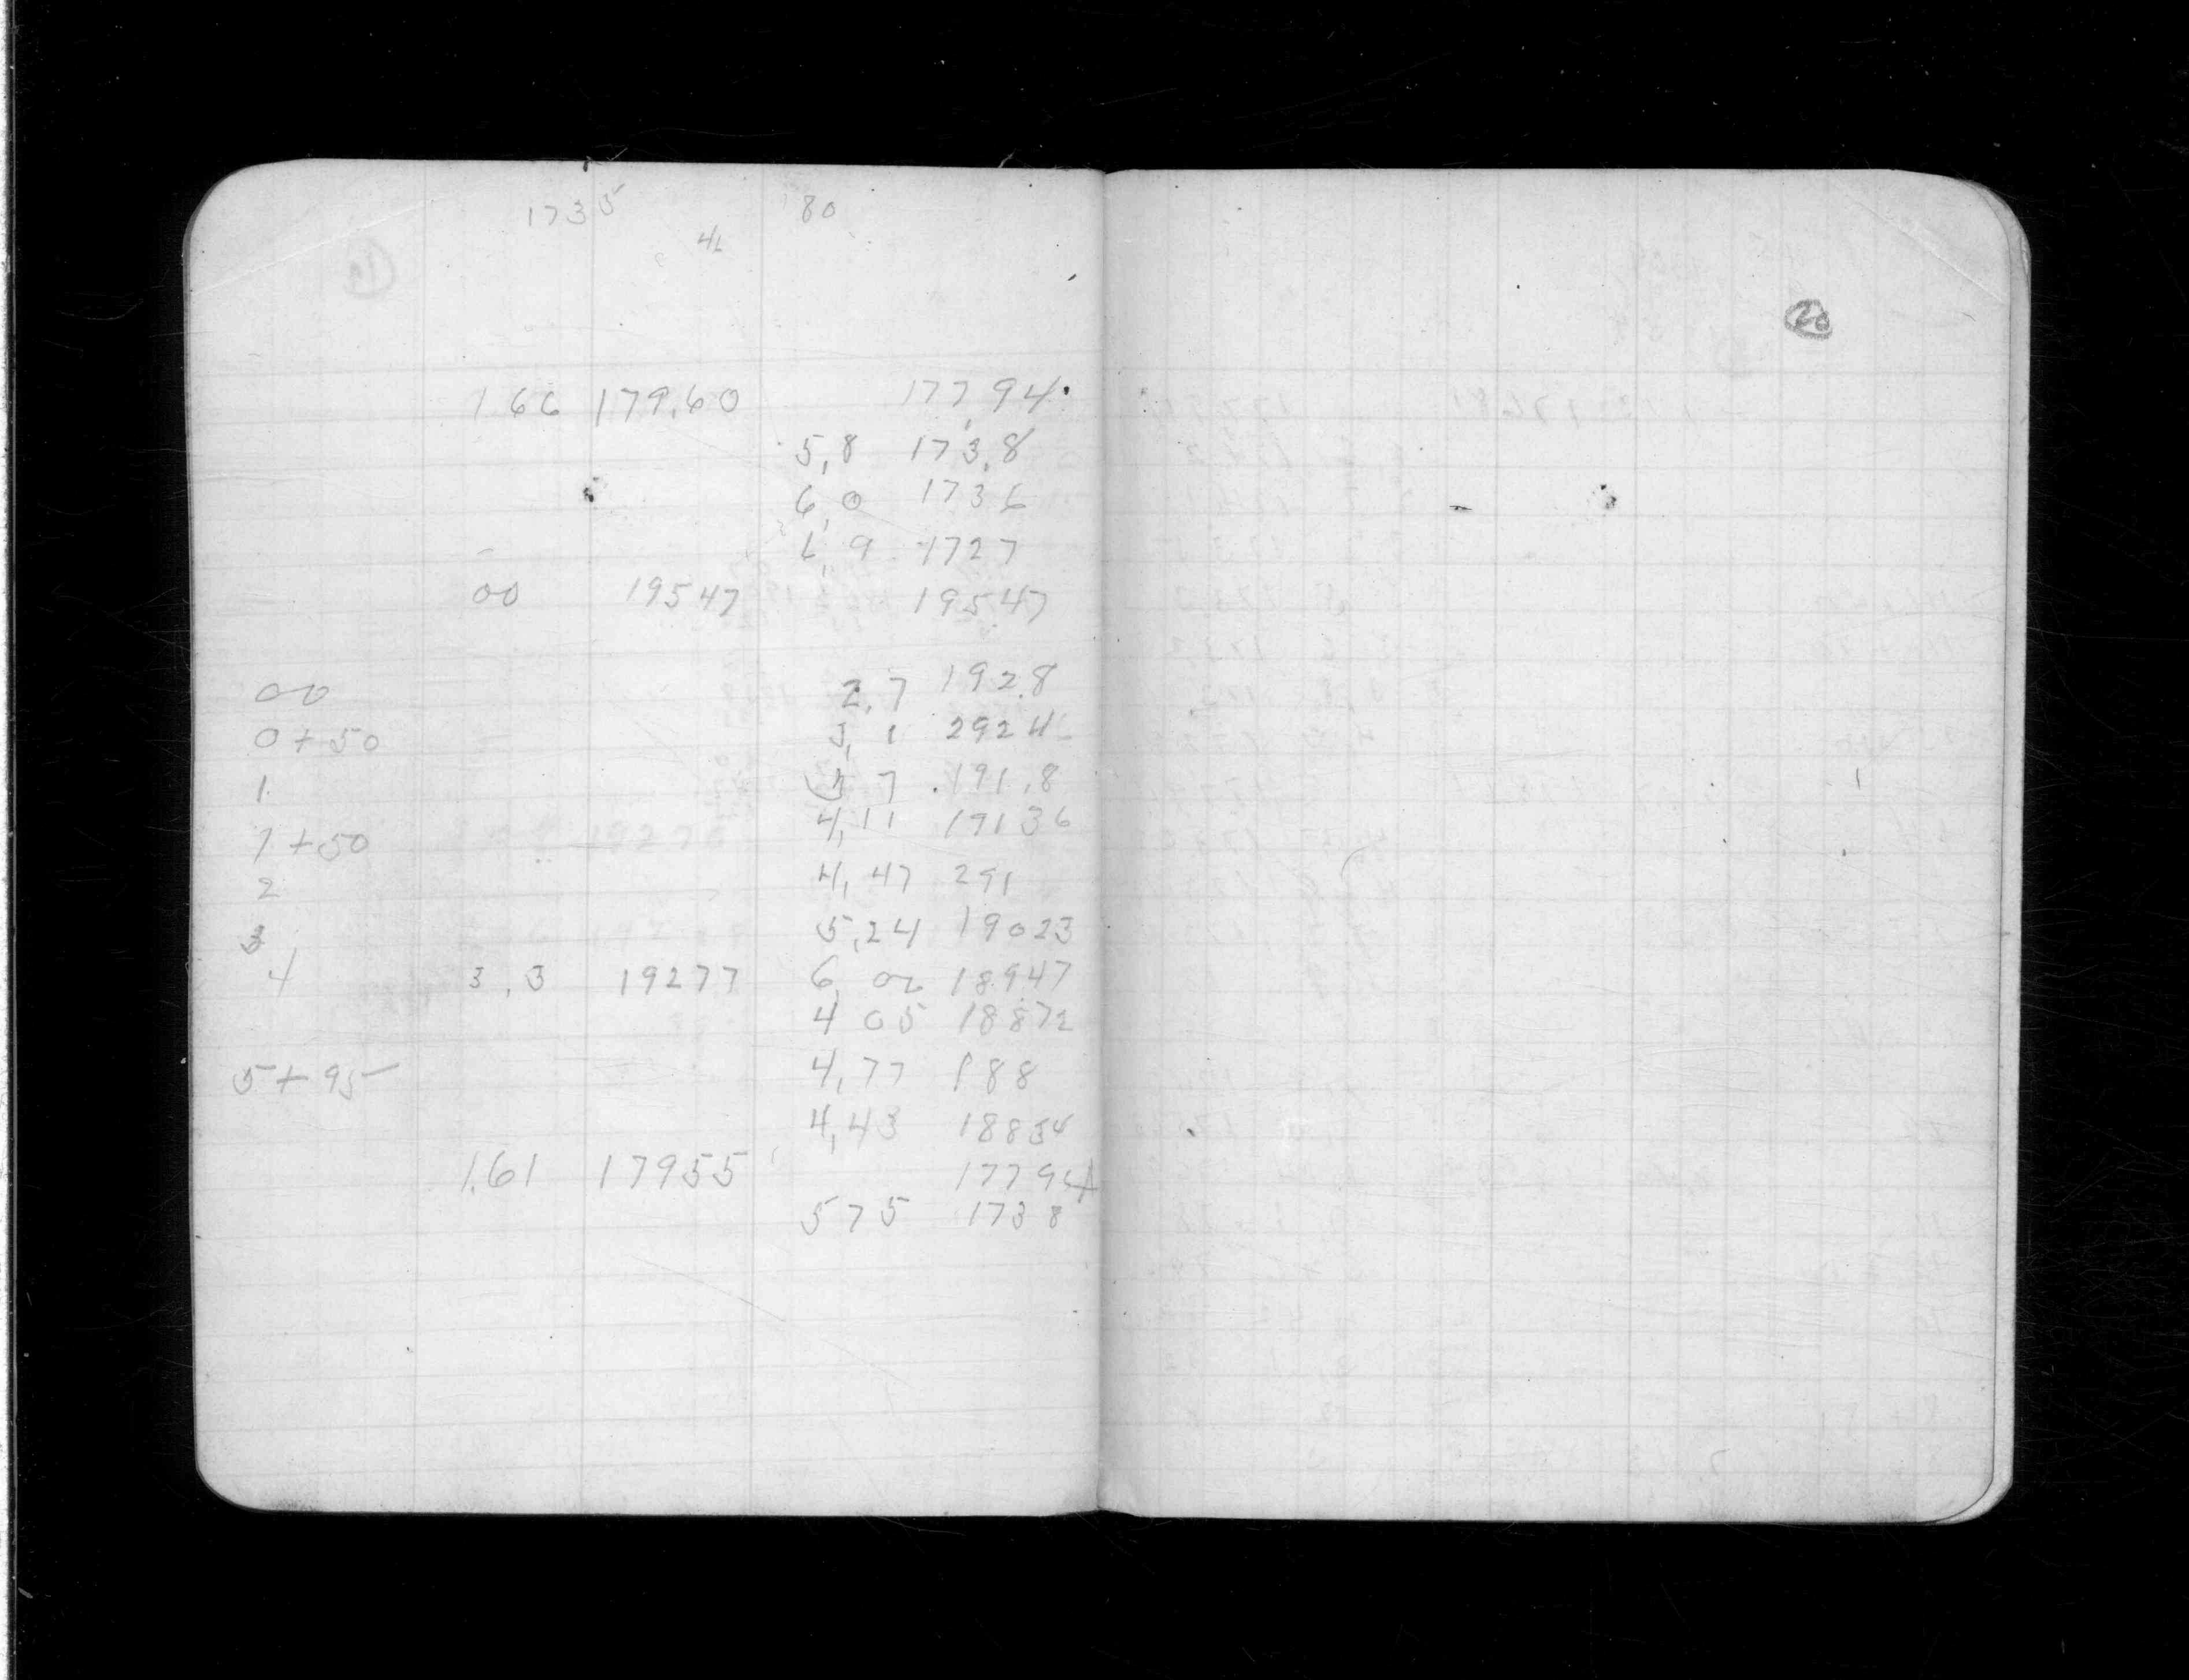 1735 80
1.66 179.60 177.94
5,8 173.8
6,0 1736
6,9 1727
00 19547 19547
00 2,7 192.8
0+50 3,1 2924
1 7 191.8
1+50 4,11 19136
2 4,47 291
3 5,24 19023
4 3,3 19277 6 02 18947
4 05 18872
5+95 4,77 188
4,43 18834
1.61 17955 17794
575 1738
20